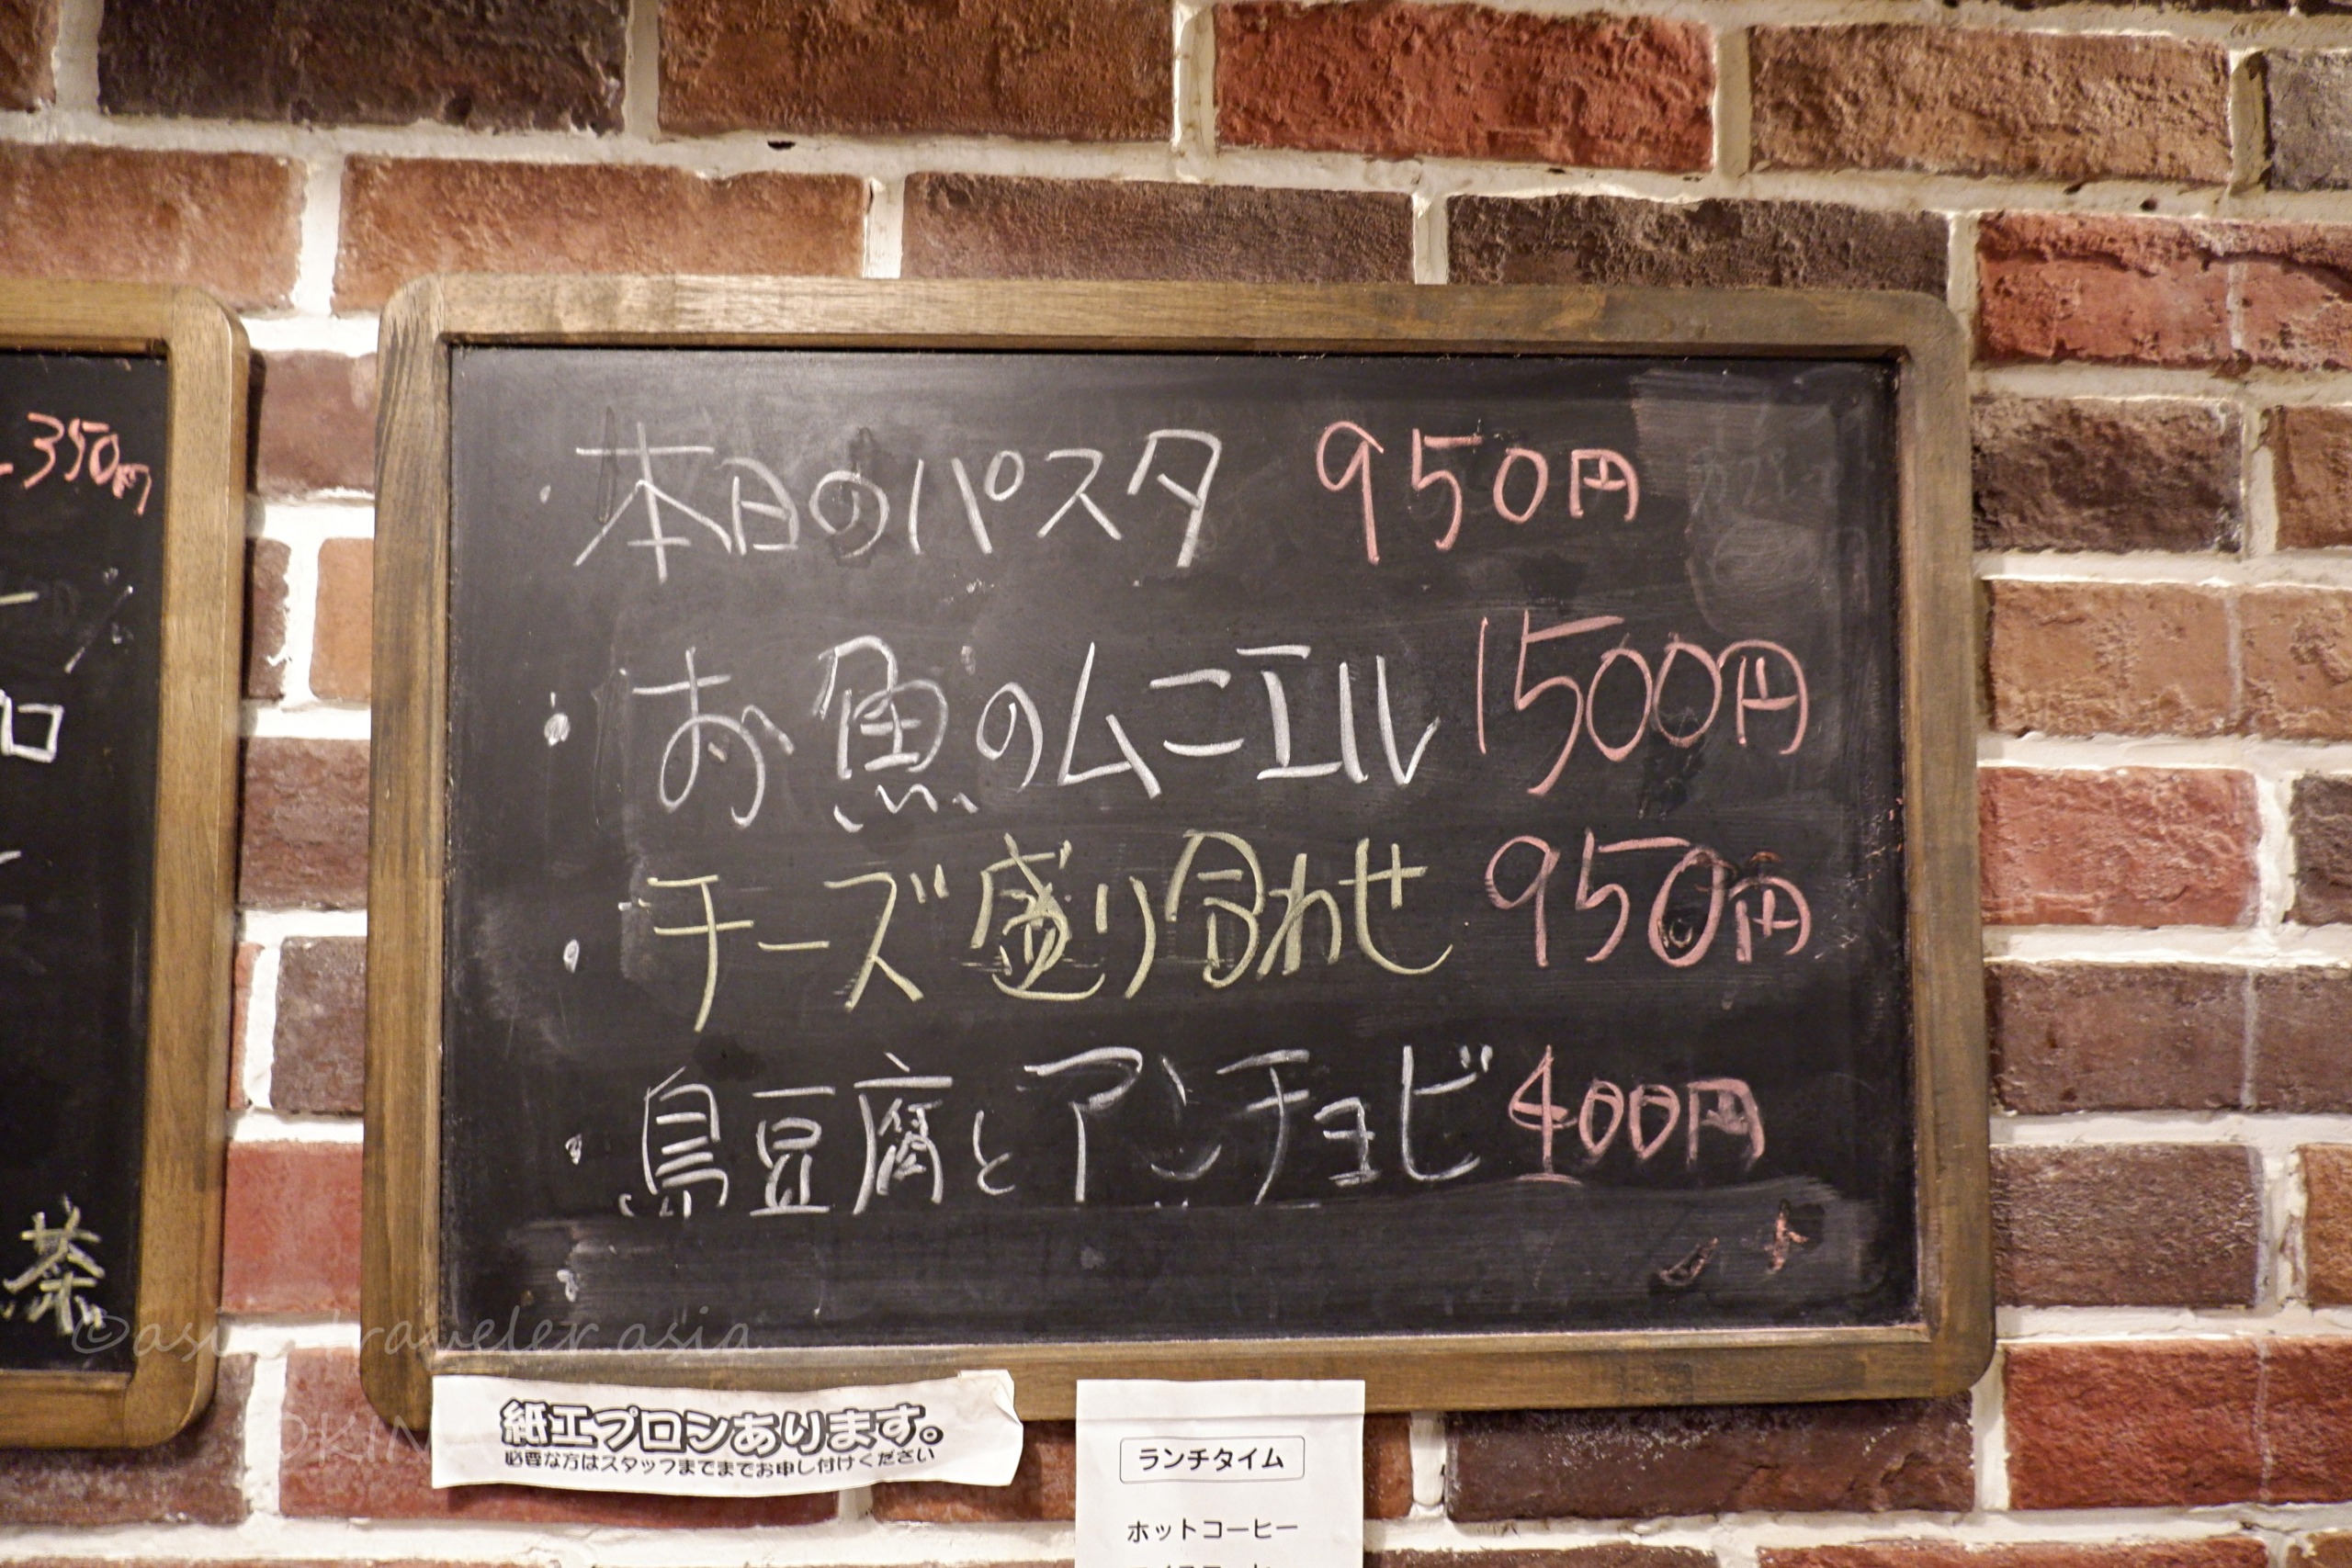 350円
ロ
茶
・本日のパスタ 950円
・お魚のムニエル 1500円
・チーズ盛り合わせ 950円
・島豆腐とアンチョビ 400円
紙エプロンあります。
必要な方はスタッフまでまでお申し付けください
ランチタイム
ホットコーヒー